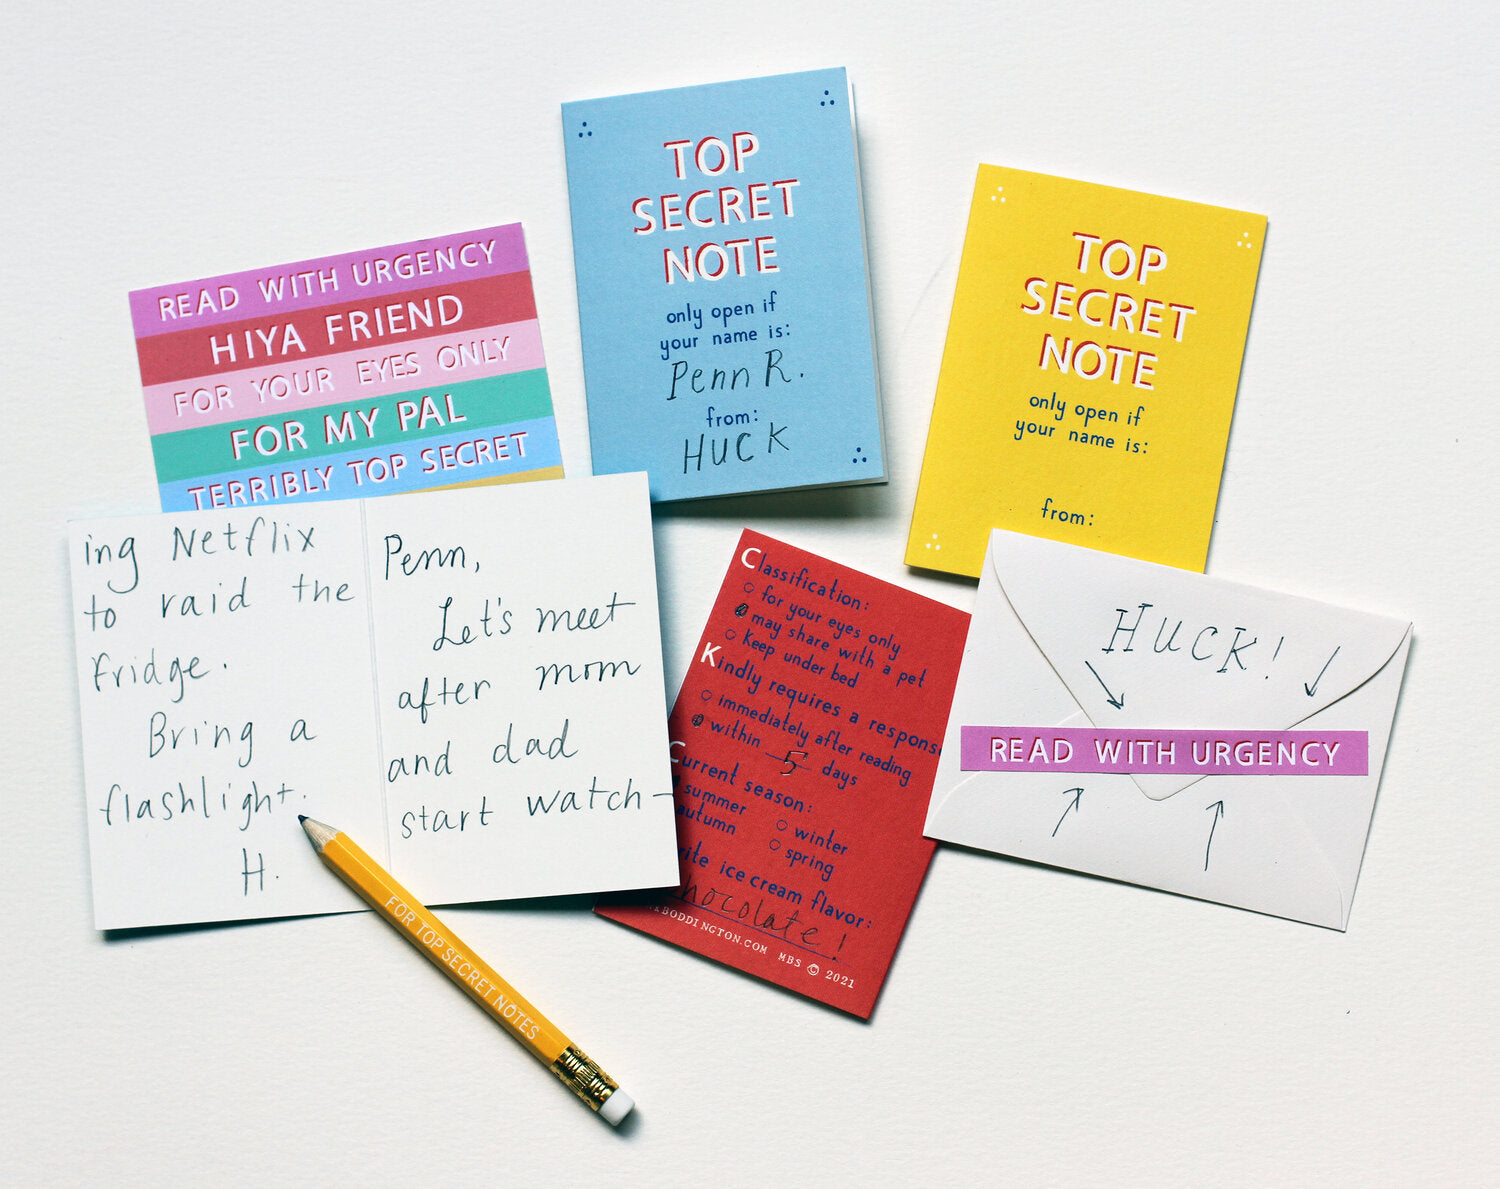 READ WITH URGENCY
HIYA FRIEND
FOR YOUR EYES ONLY
FOR MY PAL
TERRIBLY TOP SECRET
TOP
SECRET
NOTE
only open if
your name is:
Penn R.
from:
HUCK
TOP
SECRET
NOTE
only open if
your name is:
from:
ing Netflix
to raid the
fridge.
Bring a
flashlight.
H.
Penn,
Let's meet
after mom
and dad
start watch-
FOR TOP SECRET NOTES
Classification:
for your eyes only
may share with a pet
Keep under bed
Kindly requires a respons
immediately after reading
within 5 days
Current season:
summer
autumn
winter
spring
ice cream flavor:
hocolate!
BODDINGTON.COM MBS © 2021
HUCK!
READ WITH URGENCY